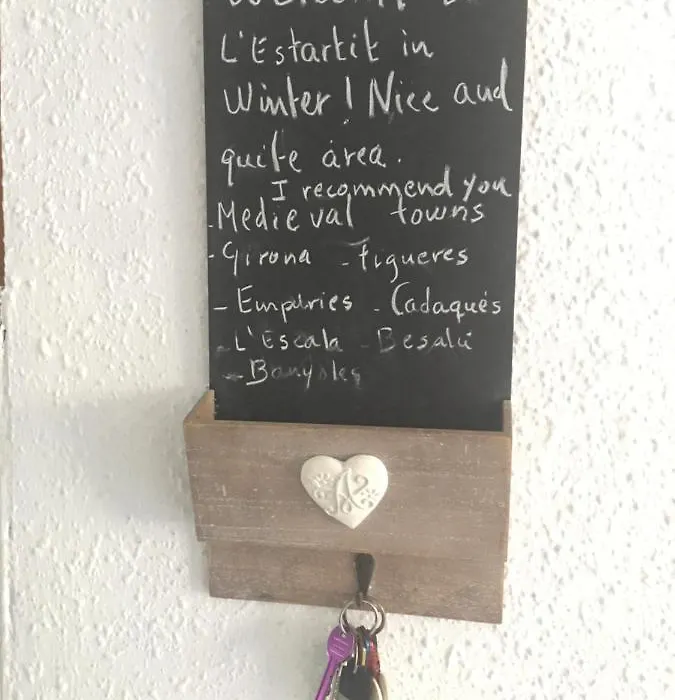 L'Estartit in
Winter! Nice and
quite area.
I recommend you
-Medieval towns
-Girona -Figueres
-Empuries -Cadaqués
-L'Escala -Besalú
-Banyoles